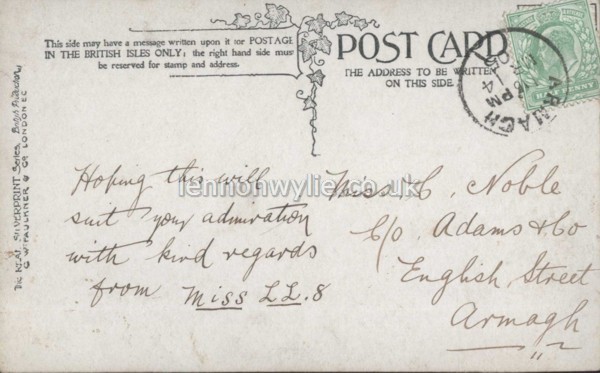 This side may have a message written upon it for POSTAGE
IN THE BRITISH ISLES ONLY; the right hand side must
be reserved for stamp and address.
POST CARD
THE ADDRESS TO BE WRITTEN
ON THIS SIDE.
ARMAGH
PM
14
Hoping this will
suit your admiration
with kind regards
from Miss LL. 8
Miss C, Noble
C/o Adams & Co
English Street
Armagh
SILVERPRINT Series.
C. W. FAULKNER & Co. LONDON. E.C.
lennonwylie.co.uk